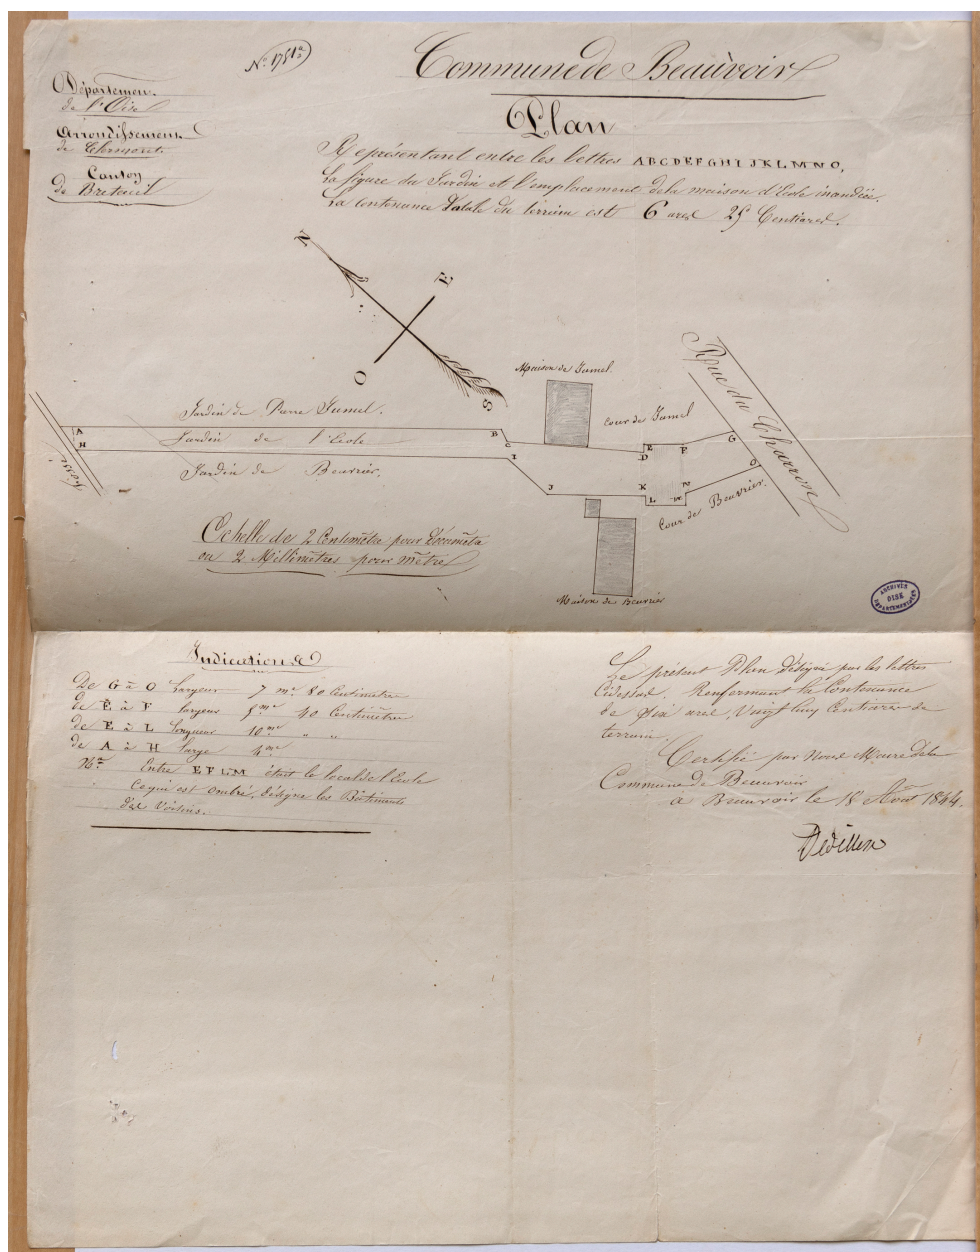 No. 1751a
Commune de Beauvoir
Département
de l'Oise
Arrondissement
de Clermont
Canton
de Breteuil
Plan
Représentant entre les lettres ABCDEFGHIJKLMNO,
La figure du Jardin et l'emplacement de la maison d'Ecole incendiée.
La Contenance Totale du terrein est 6 ares 25 Centiares.
N
E
O
S
Maison de Jumel.
Rue du Charron
Jardin de Pierre Jumel.
Cour de Jumel
A
B
C
E
F
G
H
Jardin de l'Ecole
I
D
O
Fossé
Jardin de Beuvrier.
J
K
N
L
M
Cour de Beuvrier.
Echelle de 2 Centimètre pour Décamètre
ou 2 Millimètres pour mètre
Maison de Beuvrier
ARCHIVES
OISE
DEPARTEMENTALES
Indications
De G à O largeur 7 m. 80 Centimètre
de E à F largeur 5 me 40 Centimètre
de E à L longueur 10 me " "
de A à H large 4 me
Na Entre EFLM était le local de l'Ecole
Ce qui est ombré, désigne les Bâtiments
des Voisins.
Le présent Plan désigné par les lettres
Cidessus. Renfermant la Contenance
de Six ares, Vingt cinq Centiares de
terrein.
Certifié par Nous Maire de la
Commune de Beauvoir
a Beauvoir le 18 Aout 1844.